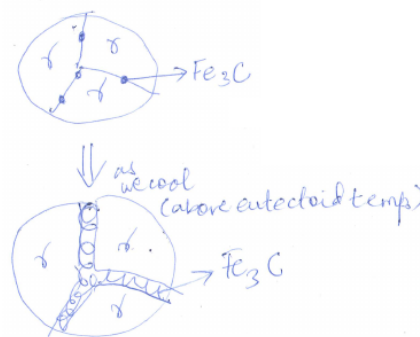 γ γ
γ
Fe₃C
as
we cool
(above eutectoid temp)
γ γ
γ
Fe₃C